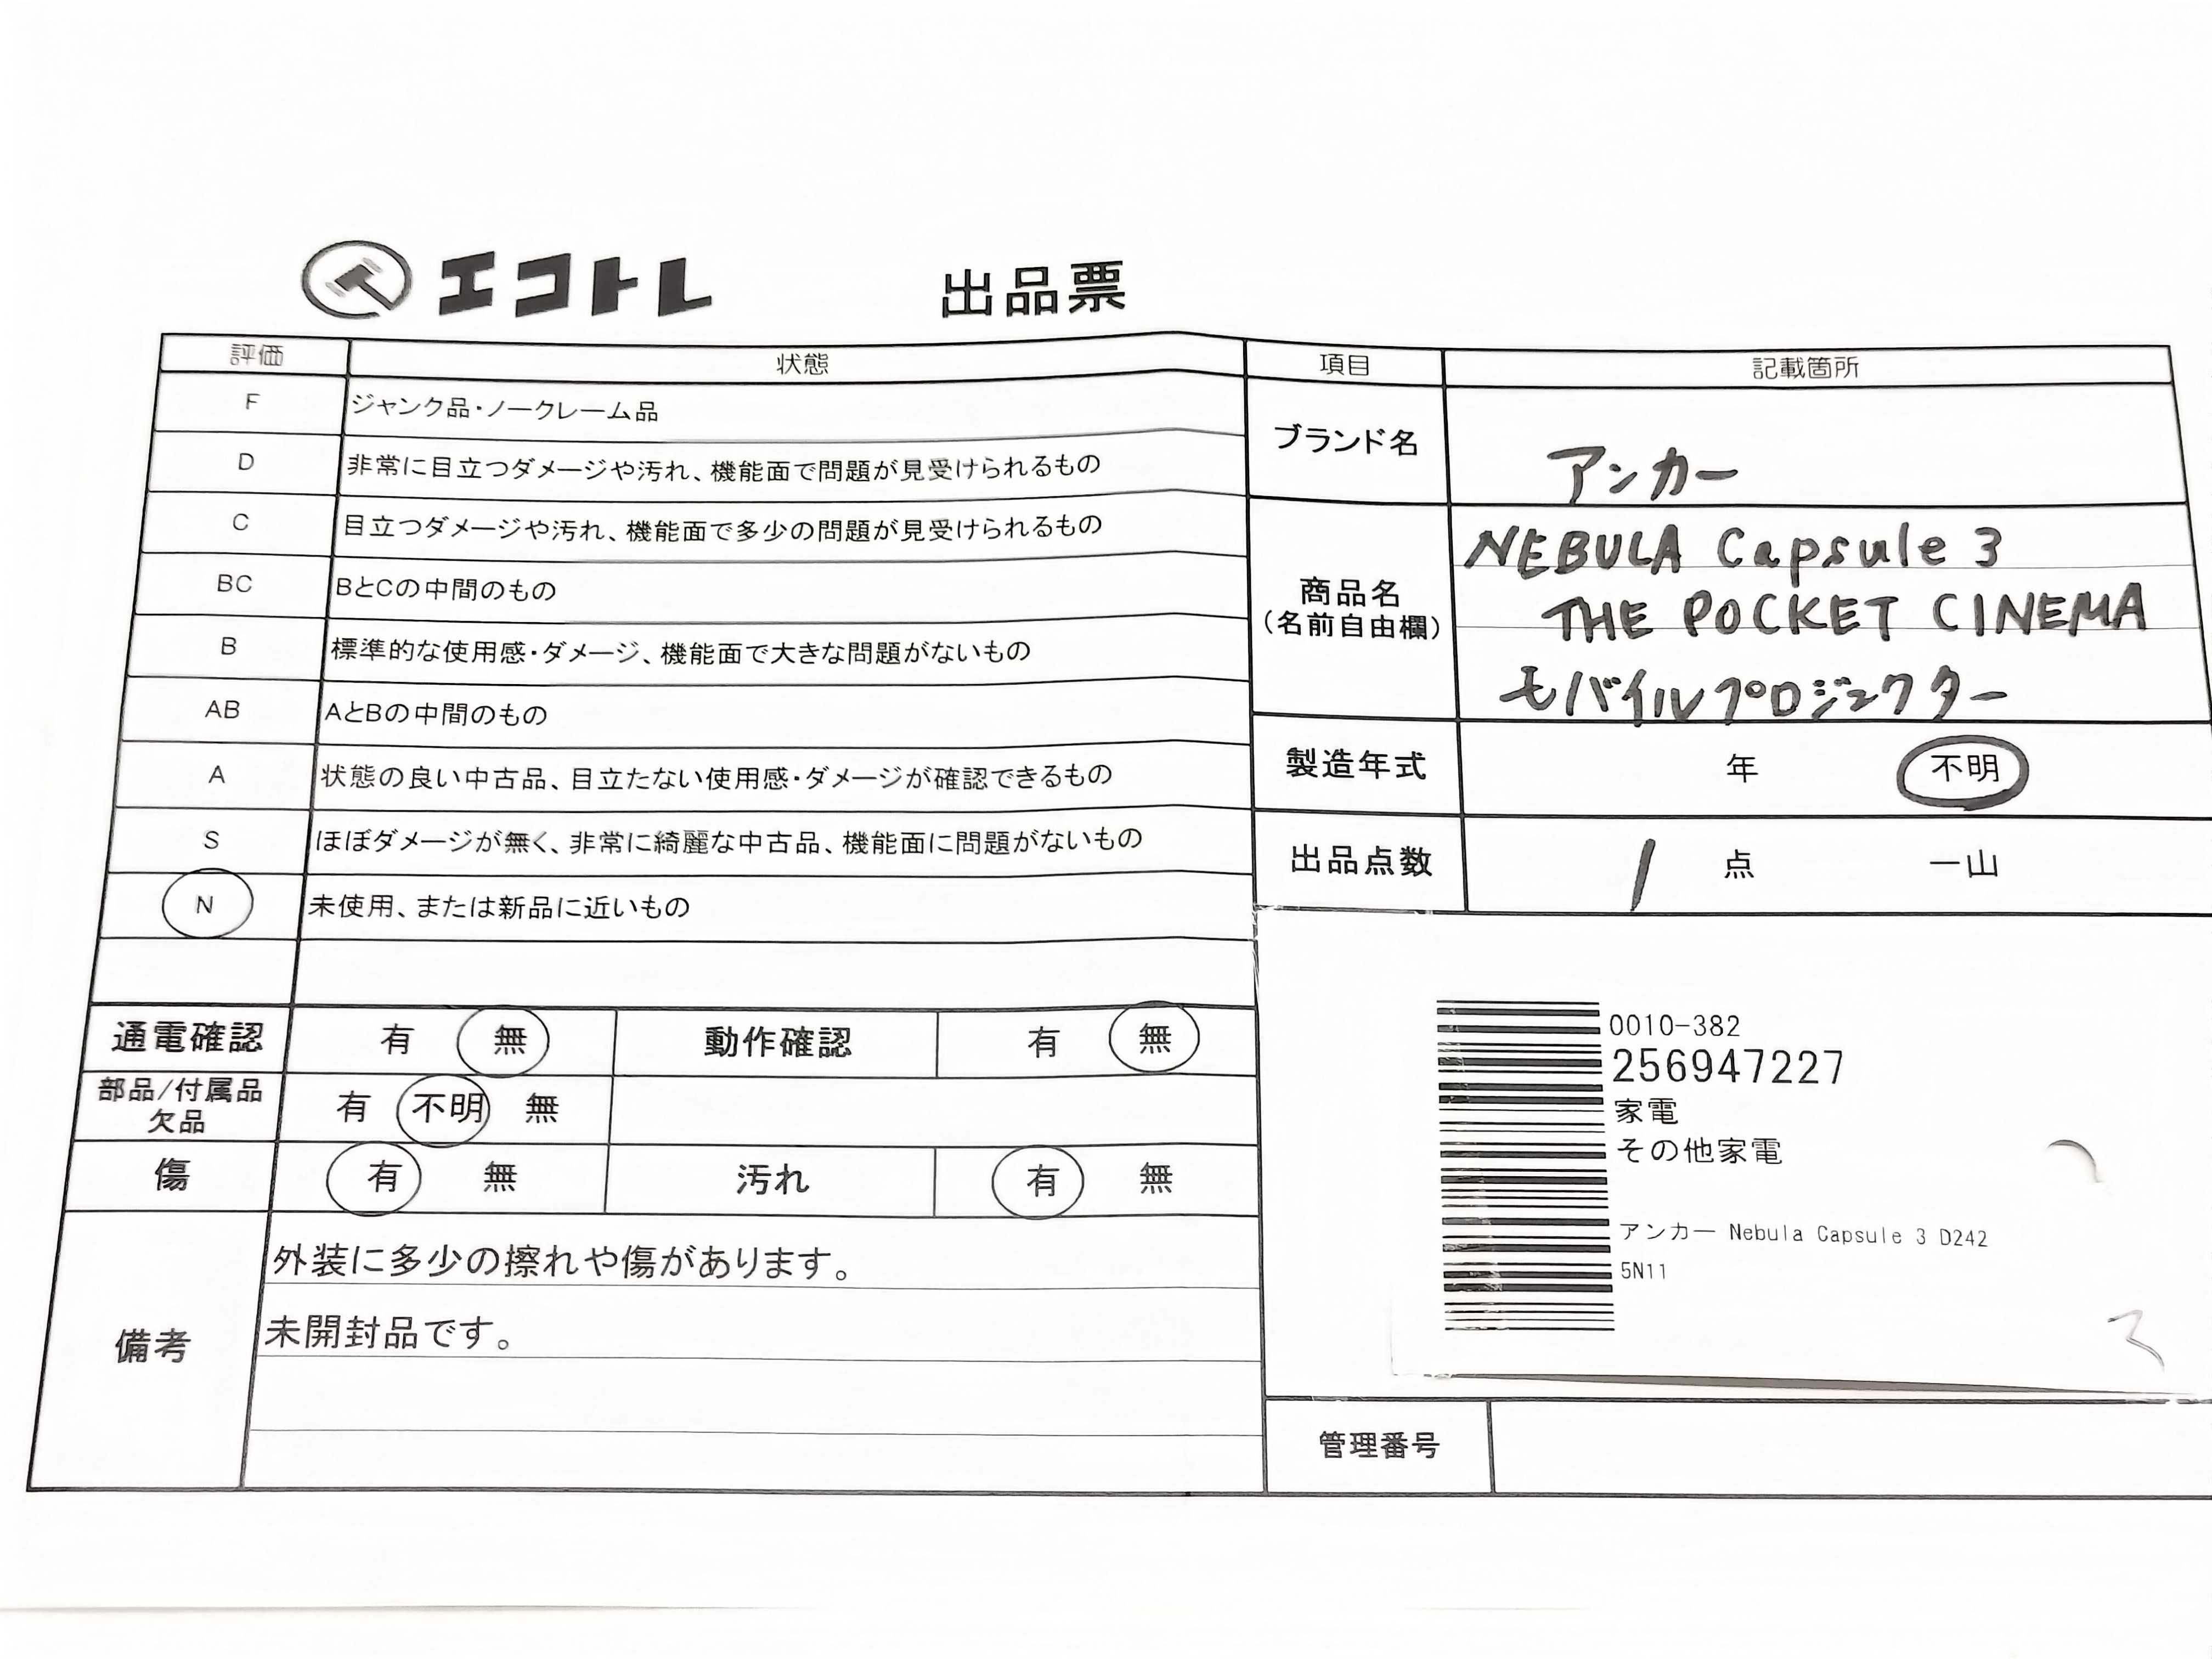 エコトレ 出品票
評価 状態
F ジャンク品・ノークレーム品
D 非常に目立つダメージや汚れ、機能面で問題が見受けられるもの
C 目立つダメージや汚れ、機能面で多少の問題が見受けられるもの
BC BとCの中間のもの
B 標準的な使用感・ダメージ、機能面で大きな問題がないもの
AB AとBの中間のもの
A 状態の良い中古品、目立たない使用感・ダメージが確認できるもの
S ほぼダメージが無く、非常に綺麗な中古品、機能面に問題がないもの
N 未使用、または新品に近いもの
通電確認 有 無 動作確認 有 無
部品/付属品
欠品 有 不明 無
傷 有 無 汚れ 有 無
備考
外装に多少の擦れや傷があります。
未開封品です。
項目 記載箇所
ブランド名 アンカー
商品名
(名前自由欄)
NEBULA Capsule 3
THE POCKET CINEMA
モバイルプロジェクター
製造年式 年 不明
出品点数 1 点 一山
0010-382
256947227
家電
その他家電
アンカー Nebula Capsule 3 D242
5N11
管理番号